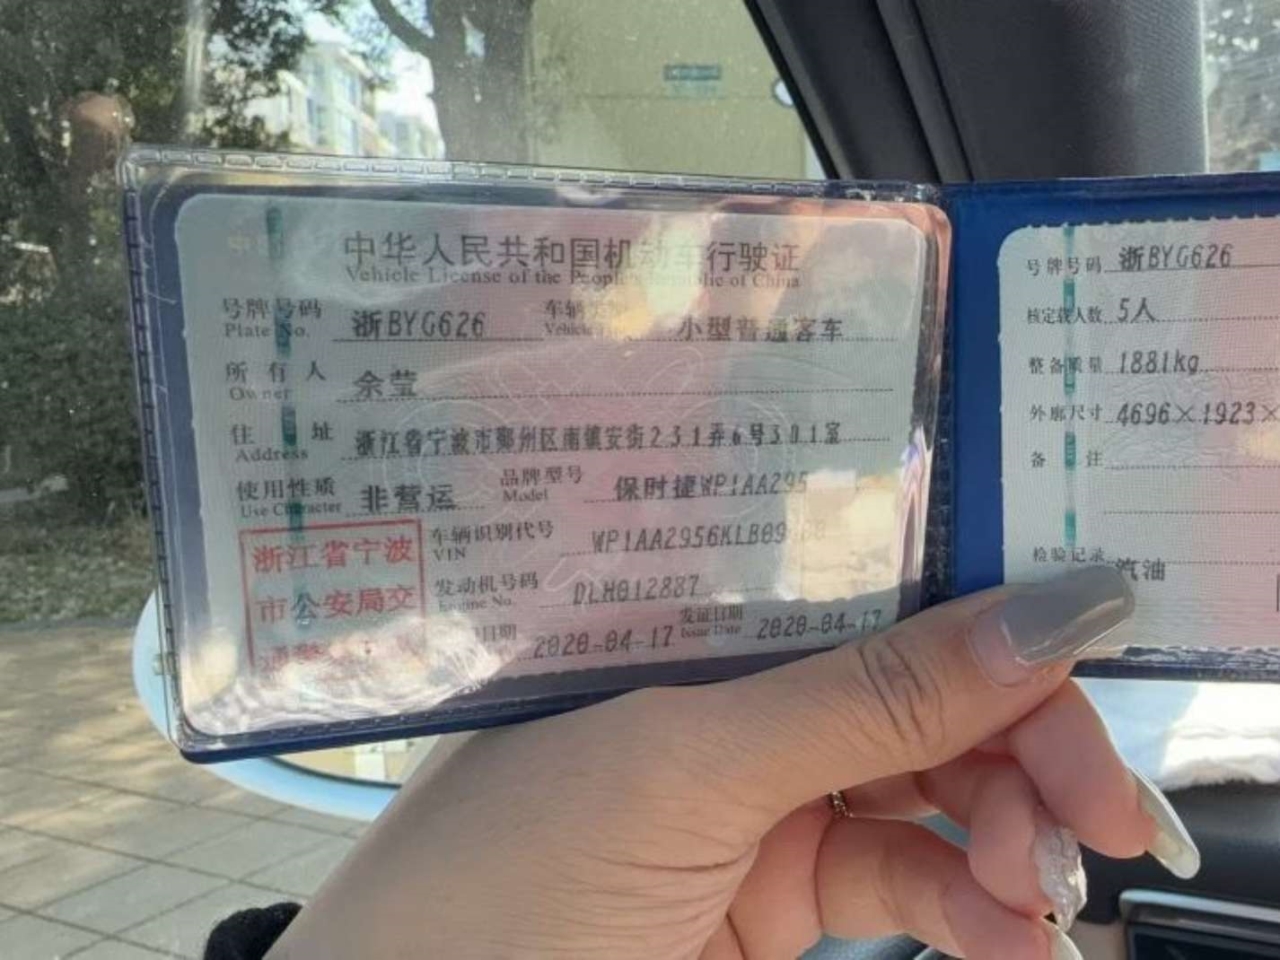 中华人民共和国机动车行驶证
Vehicle License of the People's Republic of China
号牌号码 浙BYG626 车辆类型 小型普通客车
Plate No. Vehicle
所有人 余莹
Owner
住址 浙江省宁波市鄞州区南镇安街231弄6号301室
Address
使用性质 非营运 品牌型号 保时捷WP1AA295
Use Character Model
浙江省宁波
市公安局交
车辆识别代号 WP1AA2956KLB09
VIN
发动机号码 DLH012887
Engine No.
日期 2020-04-17 发证日期 2020-04-17
Issue Date
号牌号码 浙BYG626
核定载人数 5人
整备质量 1881kg
外廓尺寸 4696×1923×
备注
检验记录 汽油